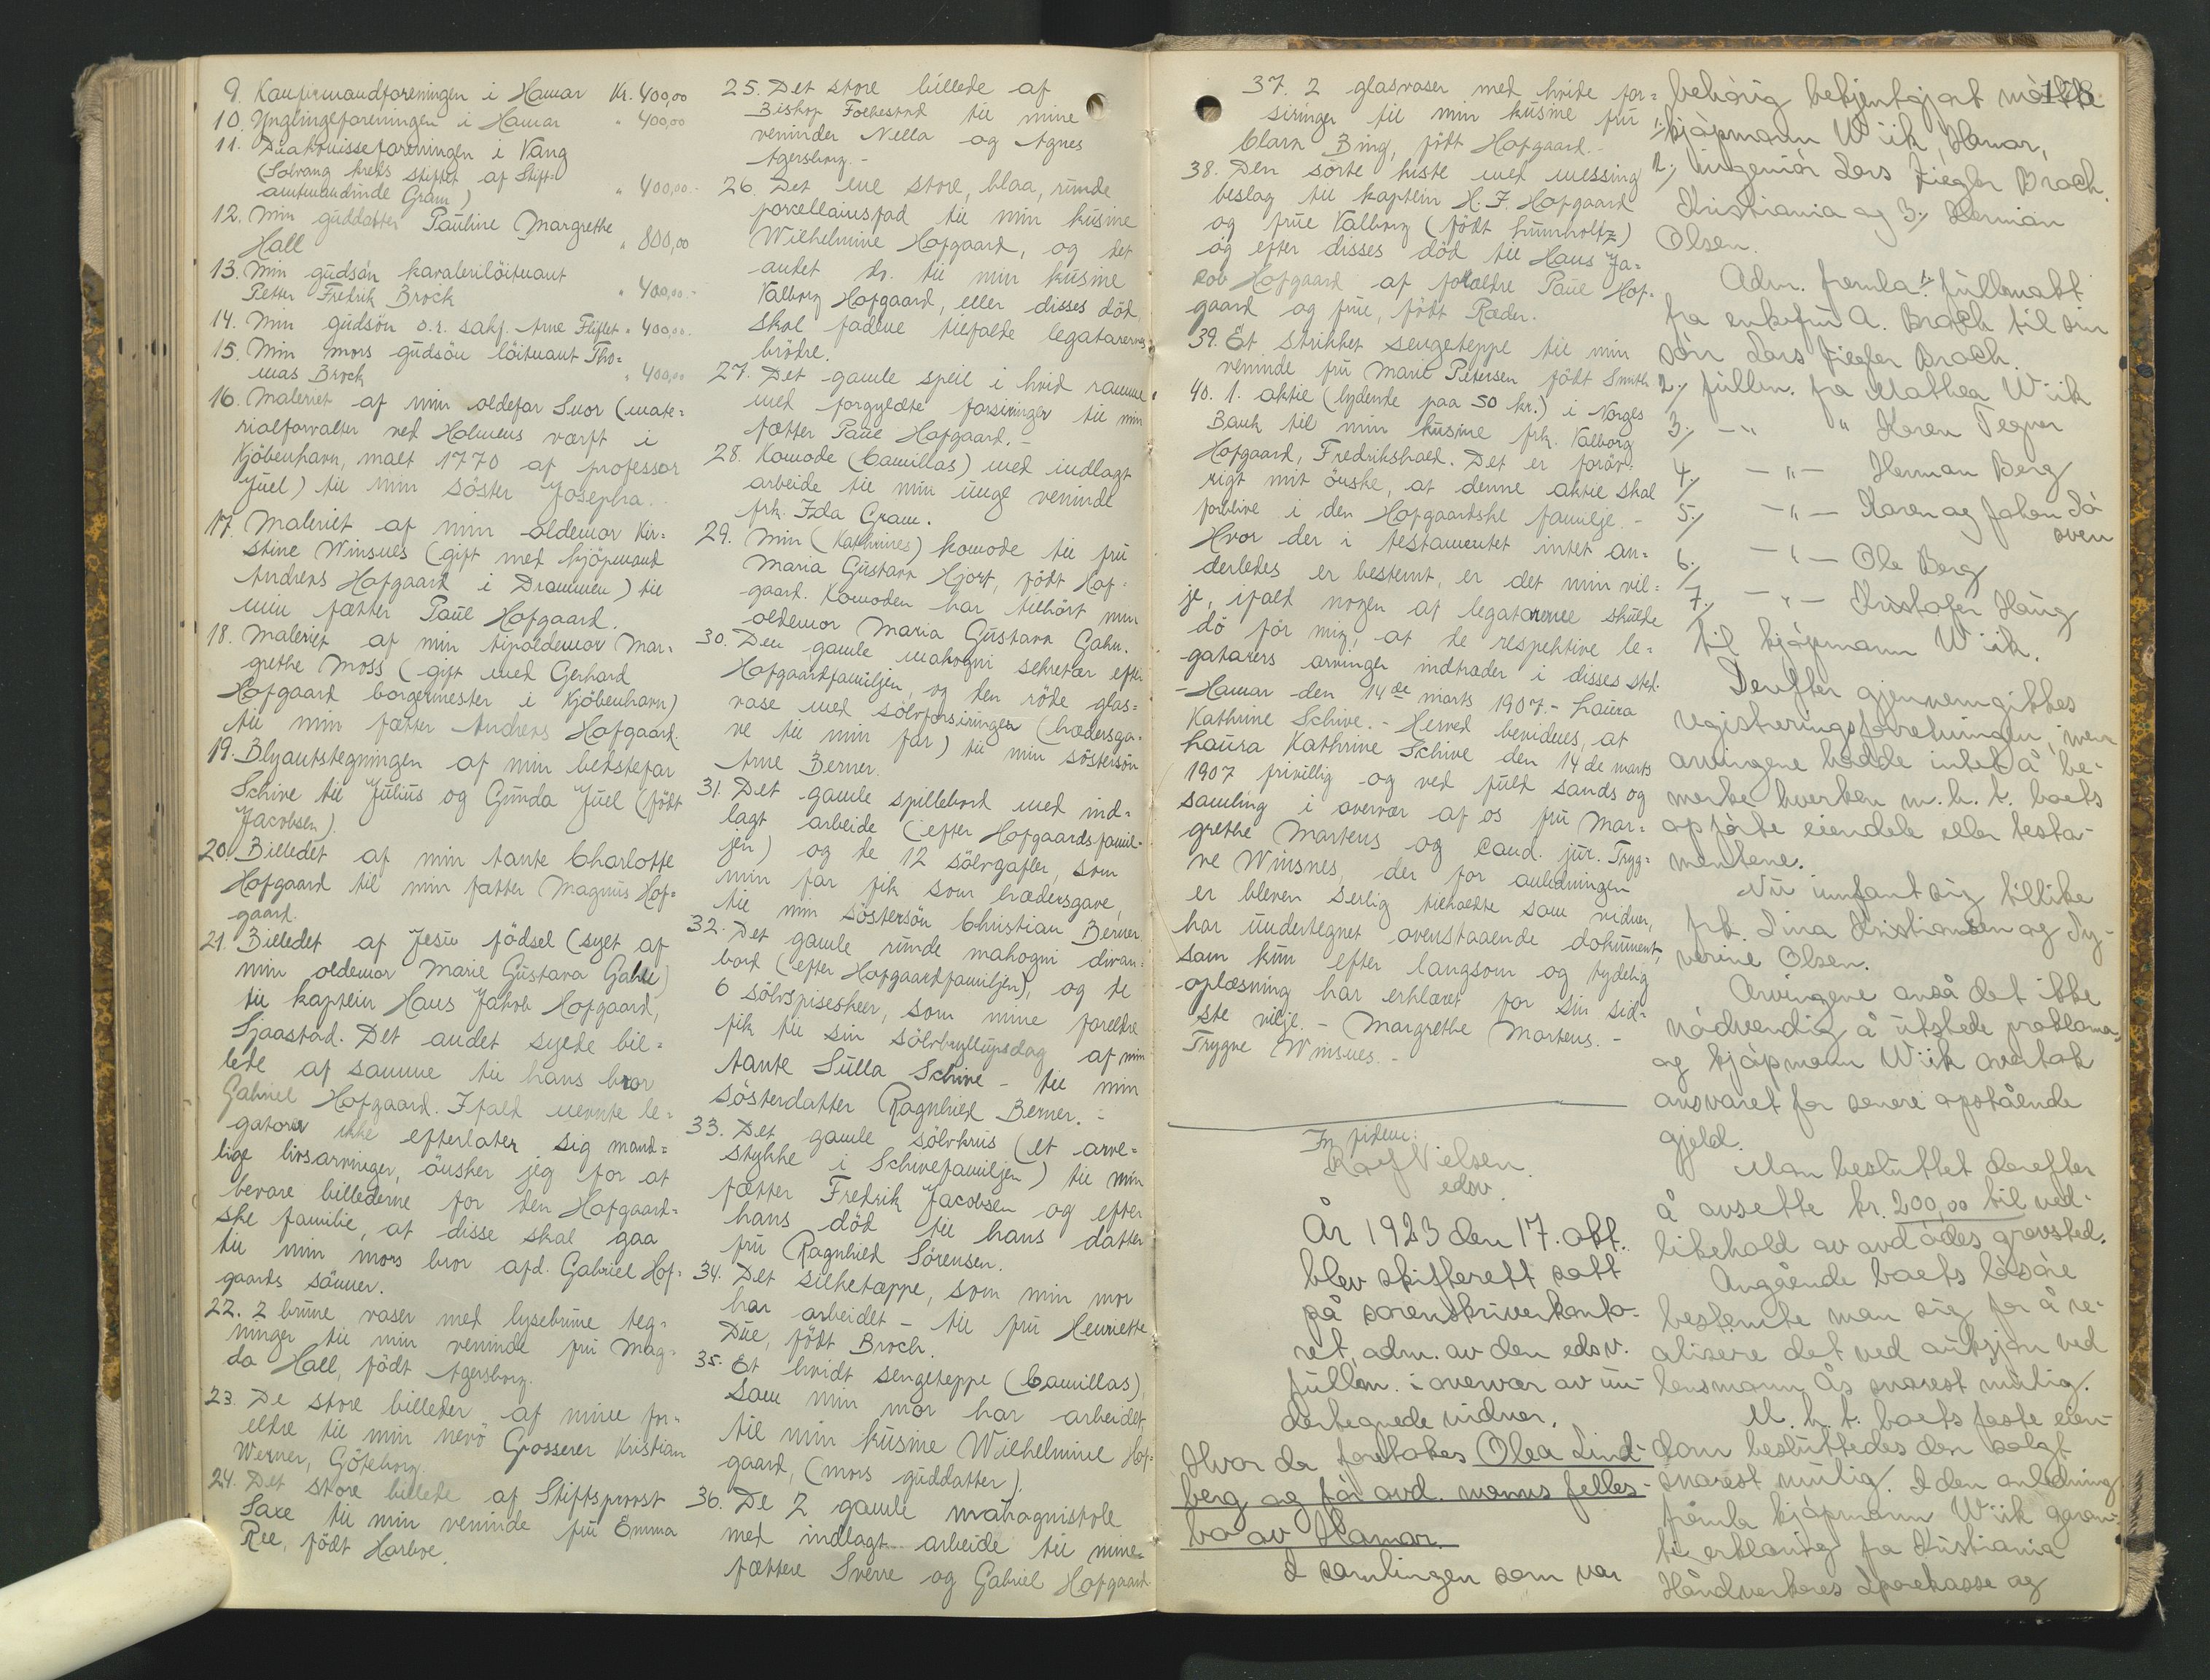 9. Kaufmandforeningen i Hamar Kr. 400,00
10. Ynglingeforeningen i Hamar " 400,00
11. Diakonisseforeningen i Vang
(Solvang kreds stiftet af Stift=
amtmandinde Gram) " 400,00.-
12. Min guddatter Pauline Margrethe
Hall " 800,00
13. Min gudsøn kavaleriløitnant
Petter Fredrik Brock " 400,00.-
14. Min gudsön o.r. sakf. Arne Fliflet " 400,00.
15. Min mors gudsön löitnant Tho=
mas Brock " 400,00
16. Maleriet af min oldefar Suor (mate=
rialforvalter ved Holmens værft i
Kjöbenhavn, malt 1770 af professor
Juel) til min söster Josepha.
17. Maleriet af min oldemor Kir=
stine Winsnes (gift med kjöpmand
Andreas Hofgaard i Drammen) til
min fætter Paul Hofgaard.
18. Maleriet af min tipoldemor Mar=
grethe Moss (gift med Gerhard
Hofgaard borgermester i Kjöbenhavn)
til min fætter Andreas Hofgaard.
19. Blyantstegningen af min bedstefar
Schive til Julius og Gunda Juel (født
Jacobsen).
20. Billedet af min tante Charlotte
Hofgaard til min fætter Magnus Hof=
gaard.
21. Billedet af Jesu födsel (syet af
min oldemor Marie Gustava Gahn)
til kaptein Hans Jakob Hofgaard,
Sjaastad. Det andet syede bil=
lede af samme til hans bror
Gabriel Hofgaard. Ifald nævnte le=
gatarer ikke efterlater sig mand=
lige livsarvinger, önsker jeg for at
bevare billederne for den Hofgaard=
ske familie, at disse skal gaa
til min mors bror afd. Gabriel Hof=
gaards sönner.
22. 2 brune vaser med lysebrune teg=
ninger til min veninde fru Mag=
da Hall, födt Agersborg.
23. De store billeder af mine for=
eldre til min nevö Grosserer Kristian
Werner, Göteborg.
24. Det store billede af Stiftsprovst
Saxe til min veninde fru Emma
Ree, födt Harbye.
25. Det store billede af
Biskop Folkestad til mine
veninder Nella og Agnes
Agersborg.-
26. Det ene store, blaa, runde
porcellainsfad til min kusine
Wilhelmine Hofgaard, og det
andet do. til min kusine
Valborg Hofgaard, eller disses död
skal fadene tilfalde legatarernes
brödre.
27. Det gamle speil i hvid ramme
med forgyldte forsiringer til min
fætter Paul Hofgaard.-
28. Komode (Camillas) med indlagt
arbeide til min unge veninde
frk. Ida Gram.
29. Min (Kathrines) komode til fru
Maria Gustava Hjort, födt Hof=
gaard. Komoden har tilhört min
oldemor Maria Gustava Gahn.
30. Den gamle mahogni sekretær efter
Hofgaardfamiljen, og den röde glas=
vase med sölvforsiringer (hædersga=
ve til min far) til min söstersön
Arne Berner.
31. Det gamle spillebord med ind=
lagt arbeide (efter Hofgaardsfamil=
jen) og de 12 sölvgafler, som
min far fik som hædersgave,
til min söstersön Christian Berner.
32. Det gamle runde mahogni divan=
bord (efter Hofgaardfamiljen), og de
6 sölvspiseskeer, som mine foreldre
fik til sin sölvbryllupsdag af min
tante Sulla Schive - til min
sösterdatter Ragnhild Berner.-
33. Det gamle sölvkrus (et arve=
stykke i Schivefamiljen) til min
fætter Fredrik Jacobsen og efter
hans död til hans datter
fru Ragnhild Sörensen.
34. Det silketæppe, som min mor
har arbeidet - til fru Henriette
Due, födt Broch.
35. Et hvidt sengeteppe (Camillas),
som min mor har arbeidet
til min kusine Wilhelmine Hof=
gaard, (mors guddatter).
36. De 2 gamle mahognistole
med indlagt arbeide til mine
fættere Sverre og Gabriel Hofgaard
37. 2 glasvaser med hvide for=
siringer til min kusine fru
Clara Bing, födt Hofgaard.-
38. Den sorte kiste med messing
beslag til kaptein H. J. Hofgaard
og frue Valborg (födt Lumholtz)
og efter disses död til Hans Ja=
kob Hofgaard af forældre Paul Hof=
gaard og frue, födt Ræder.
39. Et strikket sengeteppe til min
veninde fru Marie Petersen födt Smith
40. 1. aktie (lydende paa 50 kr.) i Norges
Bank til min kusine frk. Valborg
Hofgaard, Fredrikshald. Det er forøv=
rigt mit önske, at denne aktie skal
forblive i den Hofgaardske familje.-
Hvor der i testamentet intet an=
derledes er bestemt, er det min vil=
je, ifald nogen af legatarerne skulde
dö för mig, at de respektive le=
gatarers arvinger indtræder i disses sted.
-Hamar den 14de marts 1907.- Laura
Kathrine Schive.- Herved bevidnes, at
Laura Kathrine Schive den 14de marts
1907 frivillig og ved fuld sands og
samling i overvær af os fru Mar=
grethe Martens og cand. jur. Tryg=
ve Winsnes, der for anledningen
er bleven særlig tilkaldte som vidner,
har undertegnet ovenstaaende dokument,
som hun efter langsom og tydelig
oplæsning har erklæret for sin sid=
ste vilje.- Margrethe Martens.-
Trygve Winsnes.-
In fidem:
Ralf Nielsen.
edsv.
År 1923 den 17. okt.
blev skifterett satt
på sorenskriverkonto-
ret, adm. av den edsv.
fullm. i overvær av un-
dertegnede vidner.
Hvor da foretokes Olea Lind-
berg og før avd. manns felles-
bo av Hamar.
I samlingen som var
128.
behørig bekjentgjort møtte
1/ kjøpmann Wiik, Hamar,
2/ ingeniør Lars Ziegler Broch,
Kristiania og 3/ Herman
Olsen.
Adm. fremla 1/ fullmakt
fra enkefru A. Broch til sin
sønn Lars Ziegler Broch.
2/ fullm. fra Mathea Wiik
3/ -"- " Karen Tegner
4/ -"- Herman Berg
5/ -"- Karen og Johan Sö
oven
6/ -"- Ole Berg
7/ -"- Kristofer Haug
til kjøpmann Wiik.
Derefter gjennemgikkes
registreringsforretningen, men
arvingene hadde intet å be-
merke hverken m.h.t. boets
opførte eiendele eller testa-
mentene.
Nu innfant sig tillike
frk. Lina Kristiansen og Sy-
verine Olsen.
Arvingene anså det ikke
nødvendig å utstede proklama,
og kjøpmann Wiik overtok
ansvaret for senere opstående
gjeld.
Man besluttet derefter
å avsette kr. 200,00 til ved-
likehold av avdødes gravsted.
Angående boets løsøre
bestemte man sig for å re-
alisere det ved auksjon ved
lensmann Ås snarest mulig.
M.h.t. boets faste eien-
dom besluttedes den solgt
snarest mulig. I den anledning
fremla kjøpmann Wiik garan-
tierklæring fra Kristiania
Håndverkeres Sparekasse og